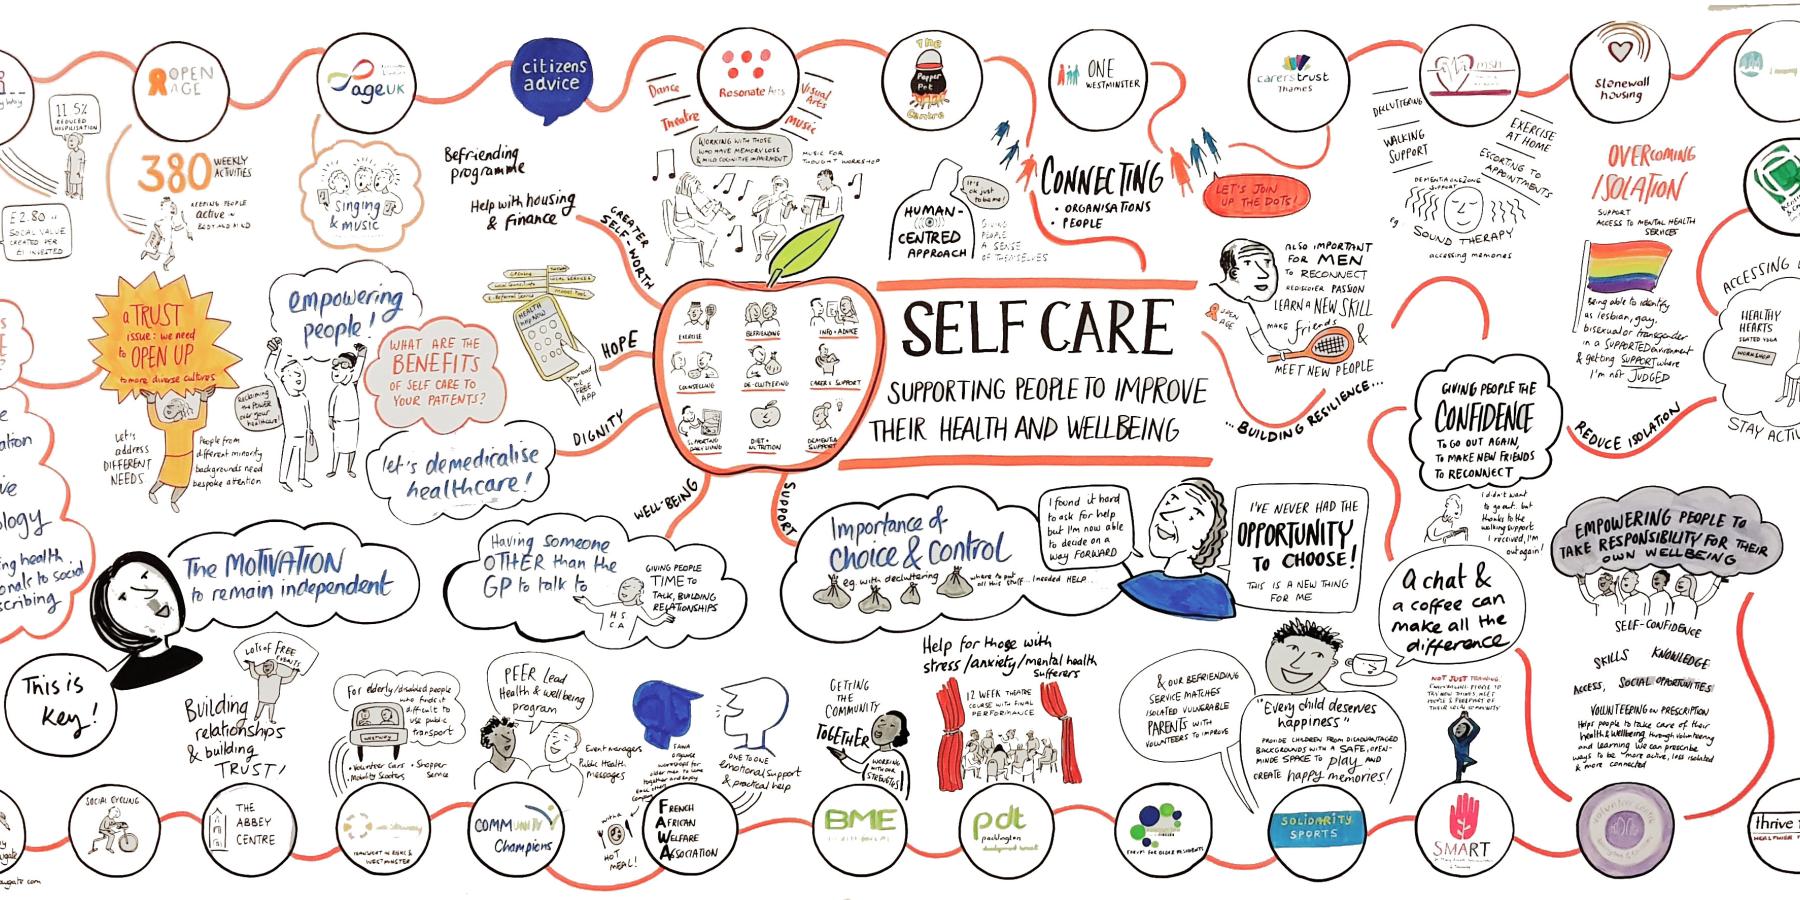 11.5%
REDUCED
HOSPITALISATION
£2.80 in
SOCIAL VALUE
CREATED PER
£1 INVESTED
OPEN
AGE
380 WEEKLY
ACTIVITIES
KEEPING PEOPLE
active in
BODY AND MIND
age UK
singing
& music
citizens
advice
Befriending
programme
Help with housing
& finance
GREATER
SELF-WORTH
HOPE
DIGNITY
WELL-BEING
SUPPORT
Resonate Arts
Dance
Theatre
Visual
Arts
Music
WORKING WITH THOSE
WHO HAVE MEMORY LOSS
& MILD COGNITIVE IMPAIRMENT
MUSIC FOR
THOUGHT WORKSHOP
The
Pepper
Pot
Centre
IT'S
ok just
to be me!
HUMAN-
CENTRED
APPROACH
GIVING
PEOPLE
A SENSE
OF THEMSELVES
ONE
WESTMINSTER
CONNECTING
• ORGANISATIONS
• PEOPLE
LET'S JOIN
UP THE DOTS!
carerstrust
Thames
ALSO IMPORTANT
FOR MEN
TO RECONNECT
REDISCOVER PASSION
LEARN A NEW SKILL
MAKE friends
&
MEET NEW PEOPLE
OPEN
AGE
...BUILDING RESILIENCE...
msh
DECLUTTERING
WALKING
SUPPORT
EXERCISE
AT HOME
ESCORTING TO
APPOINTMENTS
eg
SOUND THERAPY
accessing memories
stonewall
housing
OVERCOMING
ISOLATION
SUPPORT
ACCESS TO MENTAL HEALTH
SERVICES
Being able to identify
as lesbian, gay,
bisexual or transgender
in a SUPPORTED environment
& getting SUPPORT where
I'm not JUDGED
REDUCE ISOLATION
ACCESSING
HEALTHY
HEARTS
SEATED YOGA
WORKSHOP
STAY ACTIV
a TRUST
issue: we need
to OPEN UP
to more diverse cultures
Let's
address
DIFFERENT
NEEDS
People from
different minority
backgrounds need
bespoke attention
empowering
people!
RECLAIMING
the POWER
over your
healthcare!
WHAT ARE THE
BENEFITS
OF SELF CARE TO
YOUR PATIENTS?
let's demedicalise
healthcare!
HEALTH
Help Now
Download
FREE
APP
EXERCISE
BEFRIENDING
INFO + ADVICE
COUNSELLING
DE-CLUTTERING
CARER'S SUPPORT
SUPPORTING
DAILY LIVING
DIET +
NUTRITION
DEMENTIA
SUPPORT
SELF CARE
SUPPORTING PEOPLE TO IMPROVE
THEIR HEALTH AND WELLBEING
GIVING PEOPLE THE
CONFIDENCE
TO GO OUT AGAIN,
TO MAKE NEW FRIENDS
TO RECONNECT
I didn't want
to go out.. but
thanks to the
walking support
I received, I'm
out again!
EMPOWERING PEOPLE TO
TAKE RESPONSIBILITY FOR THEIR
OWN WELLBEING
SELF-CONFIDENCE
SKILLS KNOWLEDGE
ACCESS, SOCIAL OPPORTUNITIES
VOLUNTEERING ON PRESCRIPTION
Helps people to take care of their
health & wellbeing through volunteering
and learning. We can prescribe
ways to be more active, less isolated
& more connected
The MOTIVATION
to remain independent
This is
key!
LOTS of FREE
EVENTS
Building
relationships
& building
TRUST!
Having someone
OTHER than the
GP to talk to
GIVING PEOPLE
TIME TO
TALK, BUILDING
RELATIONSHIPS
H S
C A
Importance of
choice & control
eg. with decluttering
where to put
all this stuff... I needed HELP...
I found it hard
to ask for help
but I'm now able
to decide on a
way FORWARD
I'VE NEVER HAD THE
OPPORTUNITY
TO CHOOSE!
THIS IS A NEW THING
FOR ME
A chat &
a coffee can
make all the
difference
For elderly/disabled people
who find it
difficult to
use public
transport
WESTWAY
• Volunteer Cars • Shopper
• Mobility Scooters Service
PEER Lead
Health & wellbeing
program
Event managers
Public Health
messages
FAWA
organise
workshops for
older men to come
together and enjoy
each others
company
with a
HOT
MEAL!
ONE TO ONE
emotional support
& practical help
GETTING
THE
COMMUNITY
TOGETHER
WORKING
WITH OUR
STRENGTHS
Help for those with
stress/anxiety/mental health
sufferers
12 WEEK THEATRE
COURSE WITH FINAL
PERFORMANCE
& OUR BEFRIENDING
SERVICE MATCHES
ISOLATED VULNERABLE
PARENTS WITH
VOLUNTEERS TO IMPROVE
"Every child deserves
happiness"
PROVIDE CHILDREN FROM DISADVANTAGED
BACKGROUNDS WITH A SAFE, OPEN-
MINDE SPACE TO play AND
CREATE happy memories!
NOT JUST TRAINING:
SOCIAL CYCLING
THE
ABBEY
CENTRE
WESTMINSTER
COMMUNITY
Champions
FRENCH
AFRICAN
WELFARE
ASSOCIATION
BME
pdt
paddington
development trust
FORUM FOR OLDER RESIDENTS
SOLIDARITY
SPORTS
SMART
thrive